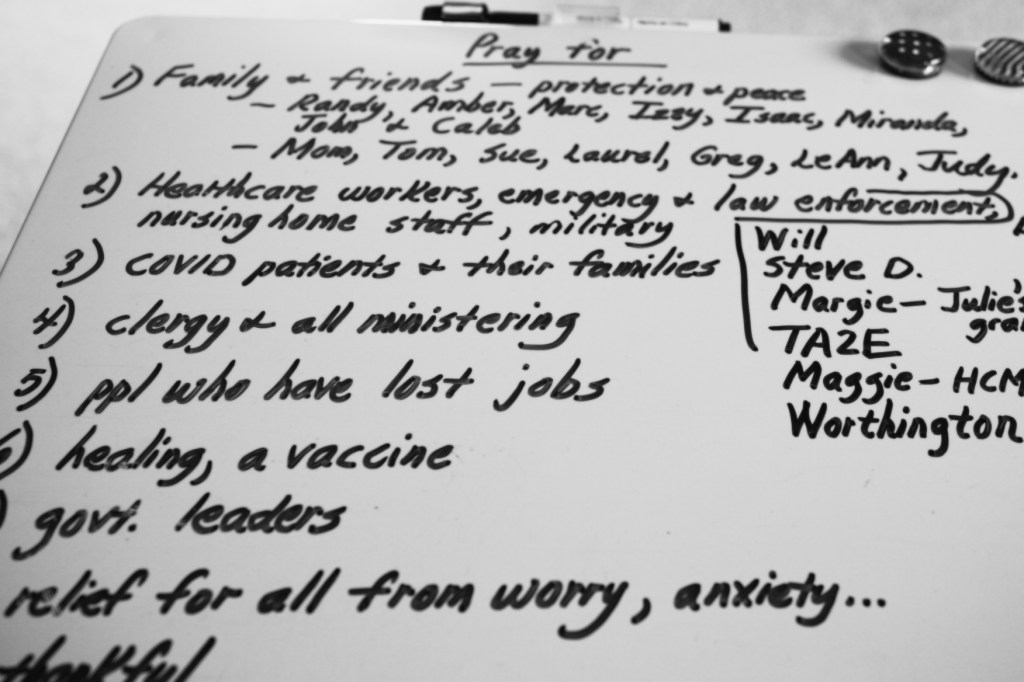 Pray for
1) Family & friends — protection & peace
— Randy, Amber, Marc, Izzy, Isaac, Miranda,
John & Caleb
— Mom, Tom, Sue, Laurel, Greg, LeAnn, Judy.
2) Healthcare workers, emergency & law enforcement,
nursing home staff, military
Will
3) COVID patients & their families
Steve D.
Margie — Julie's
4) clergy & all ministering
TAZE
5) ppl who have lost jobs
Maggie — HCM
Worthington
6) healing, a vaccine
) govt. leaders
relief for all from worry, anxiety...
thankful